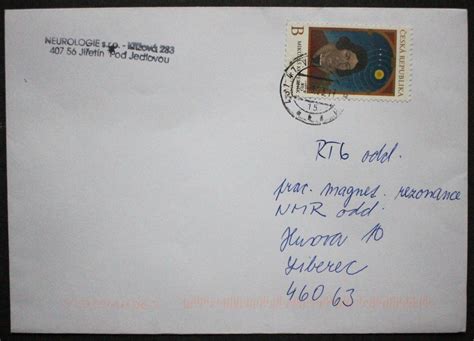 NEUROLOGIE s.r.o. - Křížová 283
407 56 Jiřetín Pod Jedlovou
B
ČESKÁ REPUBLIKA
15
RTG odd.
prac. magnes. rezonance
NMR odd.
Husova 10
Liberec
460 63